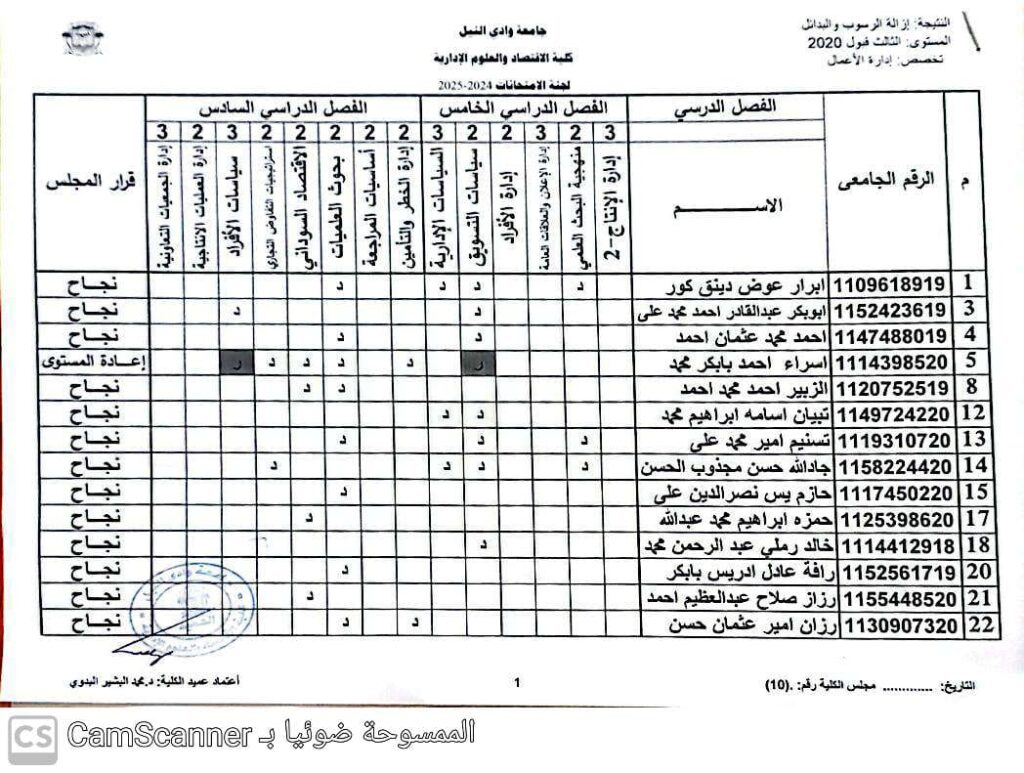 النتيجة: إزالة الرسوب والبدائل
المستوى: الثالث قبول 2020
تخصص: إدارة الأعمال
جامعة وادى النيل
كلية الاقتصاد والعلوم الإدارية
لجنة الامتحانات 2024-2025
م الرقم الجامعى الفصل الدرسي الفصل الدراسي الخامس الفصل الدراسي السادس قرار المجلس
3 2 3 2 2 3 2 2 2 2 2 3 2 3
الاســـــــــم إدارة الإنتاج-2 منهجية البحث العلمي إدارة الإعلان والعلاقات العامة إدارة الأفراد سياسات التسويق السياسات الإدارية إدارة الخطر والتأمين أساسيات المراجعة بحوث العلميات الاقتصاد السوداني استراتيجيات التفاوض التجاري سياسات الأفراد إدارة العمليات الانتاجية إدارة الجمعيات التعاونية
1 1109618919 ابرار عوض دينق كور د د د د نجـــاح
3 1152423619 ابوبكر عبدالقادر احمد محمد على د د نجـــاح
4 1147488019 احمد محمد عثمان احمد د د نجـــاح
5 1114398520 اسراء احمد بابكر محمد ر د د د د ر إعــادة المستوى
8 1120752519 الزبير احمد محمد احمد د د نجـــاح
12 1149724220 تبيان اسامه ابراهيم محمد د د نجـــاح
13 1119310720 تسنيم امير محمد على د د د نجـــاح
14 1158224420 جادالله حسن مجذوب الحسن د د د د نجـــاح
15 1117450220 حازم يس نصرالدين على د نجـــاح
17 1125398620 حمزه ابراهيم محمد عبدالله د نجـــاح
18 1114412918 خالد رملي عبد الرحمن محمد د نجـــاح
20 1152561719 رافة عادل ادريس بابكر د نجـــاح
21 1155448520 رزاز صلاح عبدالعظيم احمد د نجـــاح
22 1130907320 رزان امير عثمان حسن د د نجـــاح
التاريخ: ............. مجلس الكلية رقم: .(10)
1
أعتماد عميد الكلية: د.محمد البشير البدوي
CS الممسوحة ضوئيا بـ CamScanner